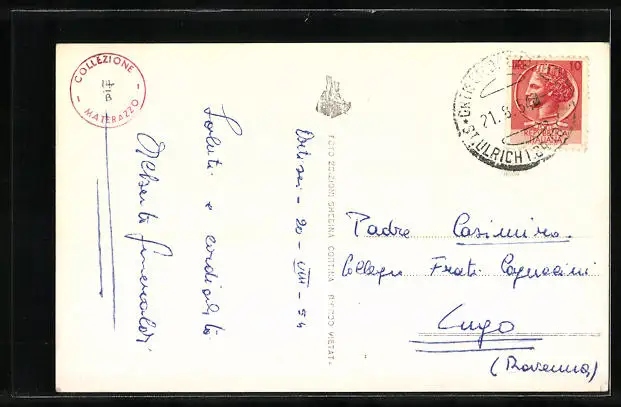 COLLEZIONE
MATERAZZO
Ortisei - 20 - VIII - 54
Saluti e cordialità
Alberto
FOTO EDIZIONI GHEDINA CORTINA RIPROD VIETATA
10
REPUBBLICA
ITALIANA
21.8.
ST ULRICH I. GR
Padre Casimiro
Collegio Frati Cappuccini
Lugo
(Ravenna)